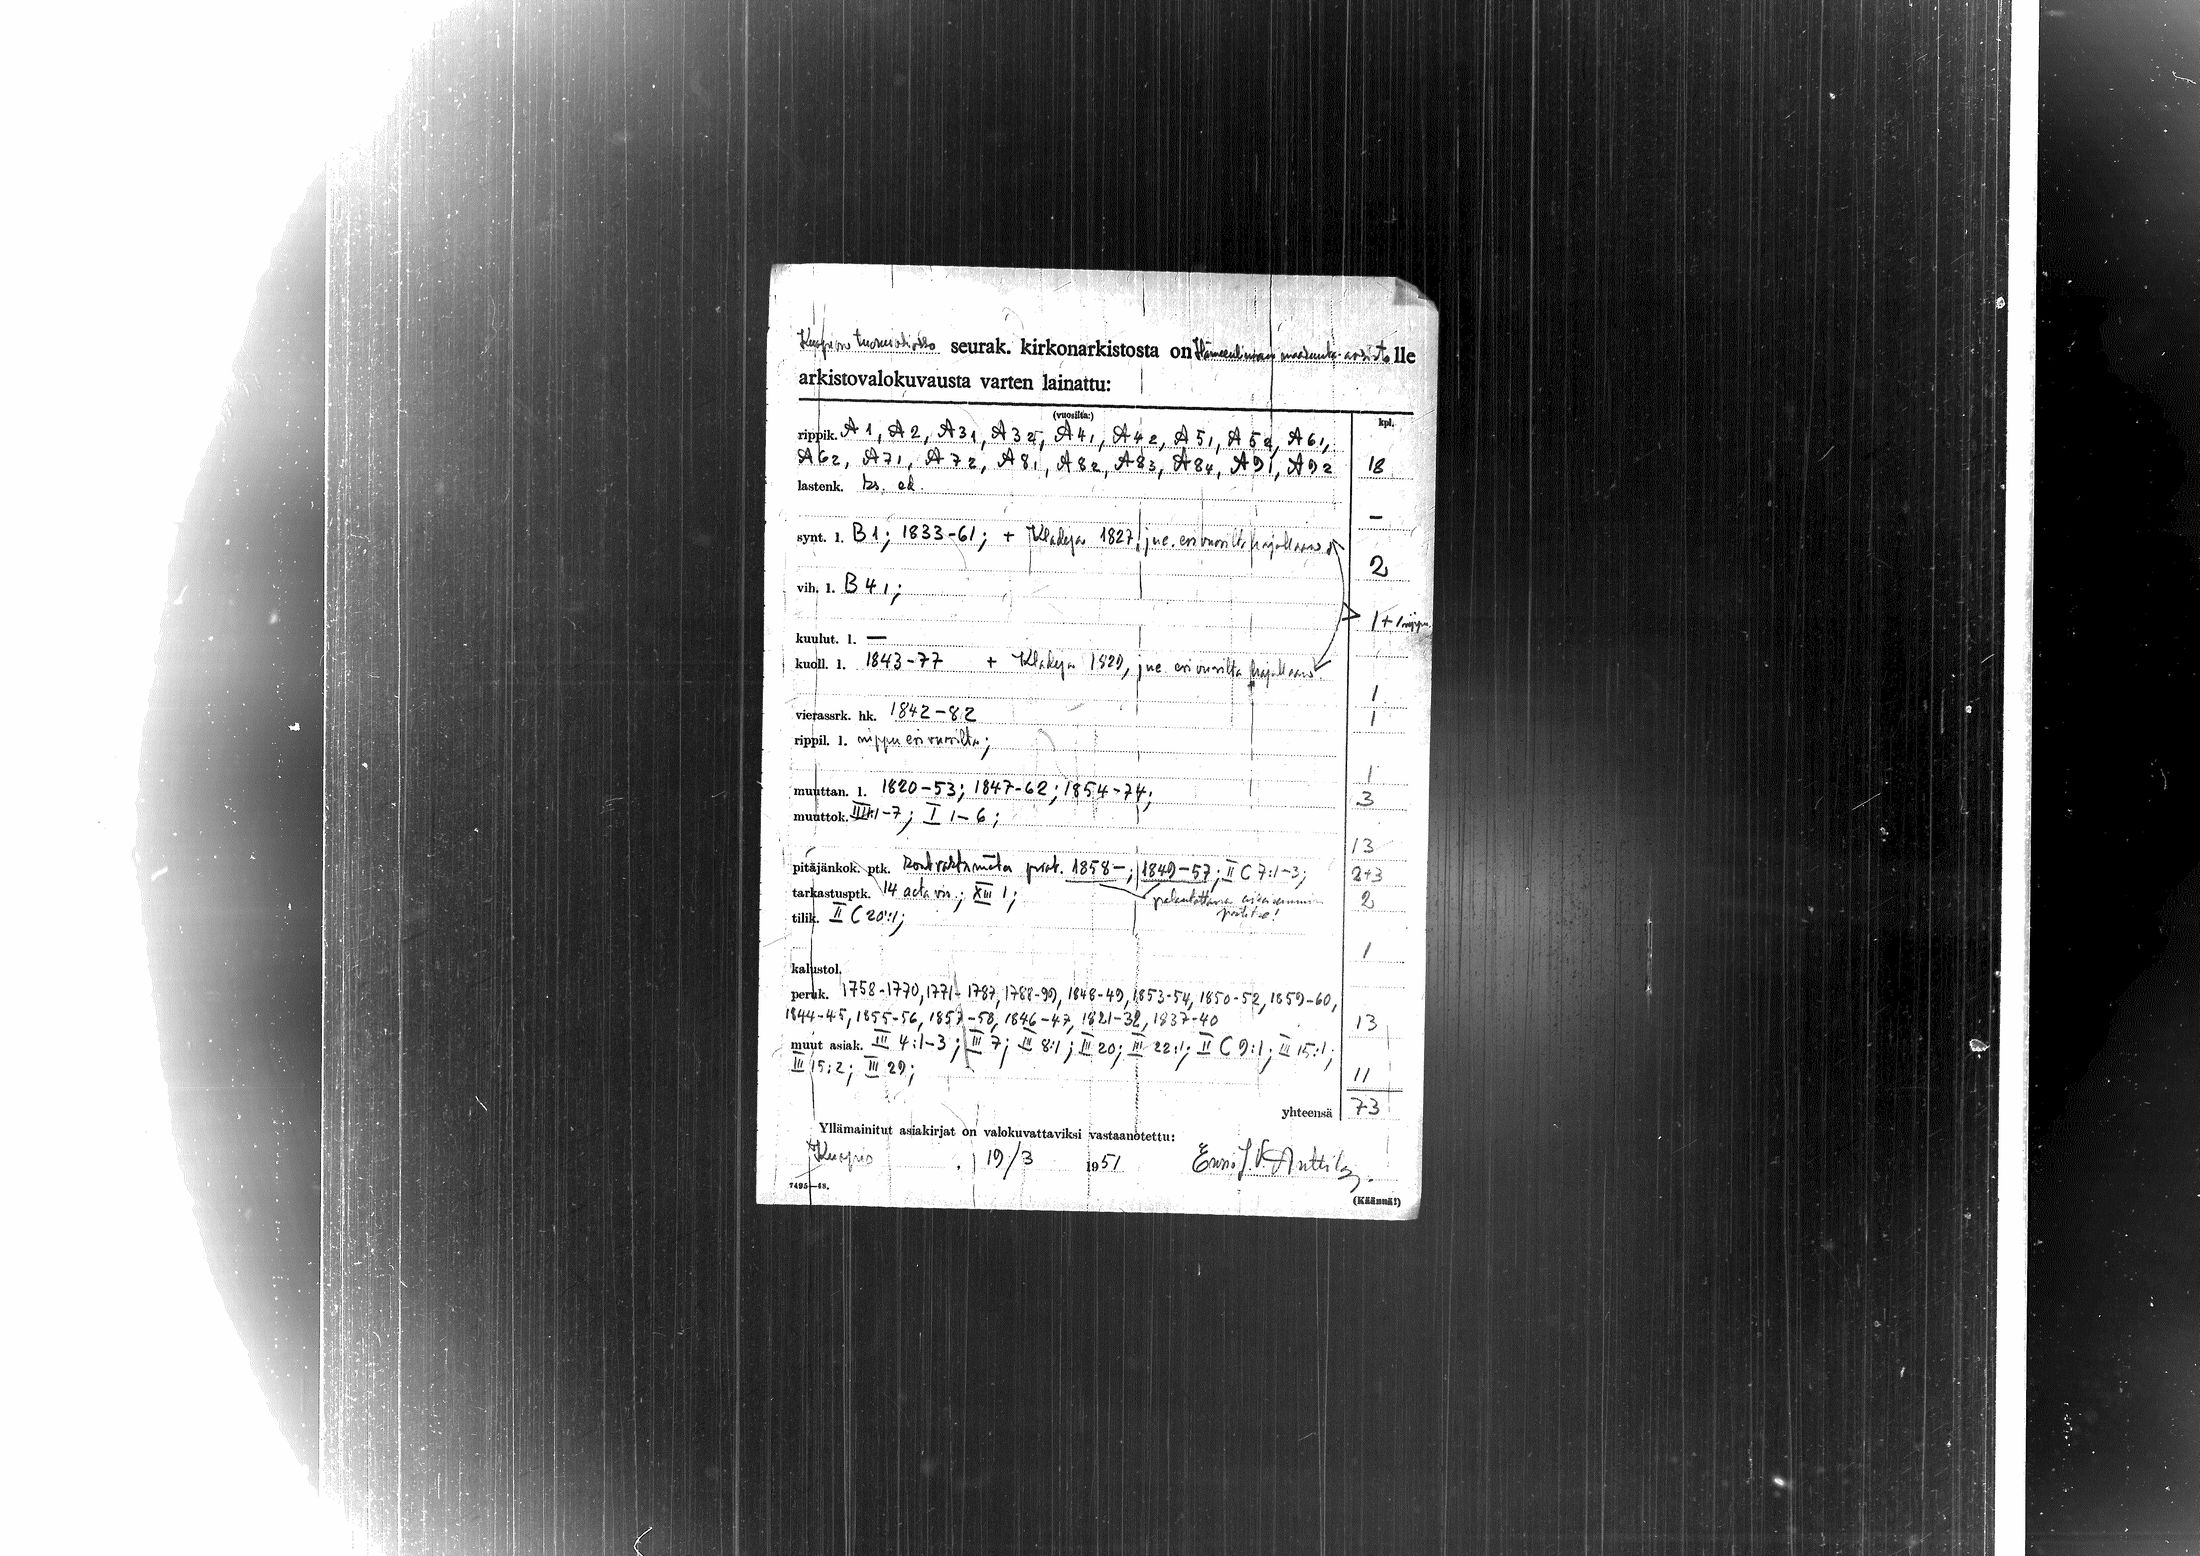 Kuopion tuomiokirkko seurak. kirkonarkistosta on Hämeenlinnan maakunta-arkisto lle
arkistovalokuvausta varten lainattu:
(vuosilta:) kpl.
rippik. A1, A2, A31, A32, A41, A42, A51, A52, A61,
A62, A71, A72, A81, A82, A83, A84, A91, A92 18
lastenk. ks. ed. —
synt. l. B1; 1833-61; + Kladeja 1827, jne. eri vuosilta hajallaan 2
vih. l. B41; 1 + 1 nippu
kuulut. l. —
kuoll. l. 1843-77 + Kladeja 1829, jne eri vuosilta hajallaan 1
vierassrk. hk. 1842-82 1
rippil. l. nippu eri vuosilta; 1
muuttan. l. 1820-53; 1847-62; 1854-74; 3
muuttok. III:1-7; I 1-6; 13
pitäjänkok. ptk. prot. 1858-; 1849-57; II C 7:1-3; 2+3
tarkastusptk. 14 acta vis.; XIII 1; 2
tilik. II C 20:1; 1
kalustol.
peruk. 1758-1770, 1771-1787, 1788-99, 1848-49, 1853-54, 1850-52, 1859-60,
1844-45, 1855-56, 1857-58, 1846-47, 1821-32, 1837-40 13
muut asiak. III 4:1-3; III 7; III 8:1; III 20; III 22:1; II C 9:1; III 15:1;
III 15:2; III 29; 11
yhteensä 73
Yllämainitut asiakirjat on valokuvattaviksi vastaanotettu:
Kuopio . 19/3 1951 Anttila
7495—48.
(Käännä!)